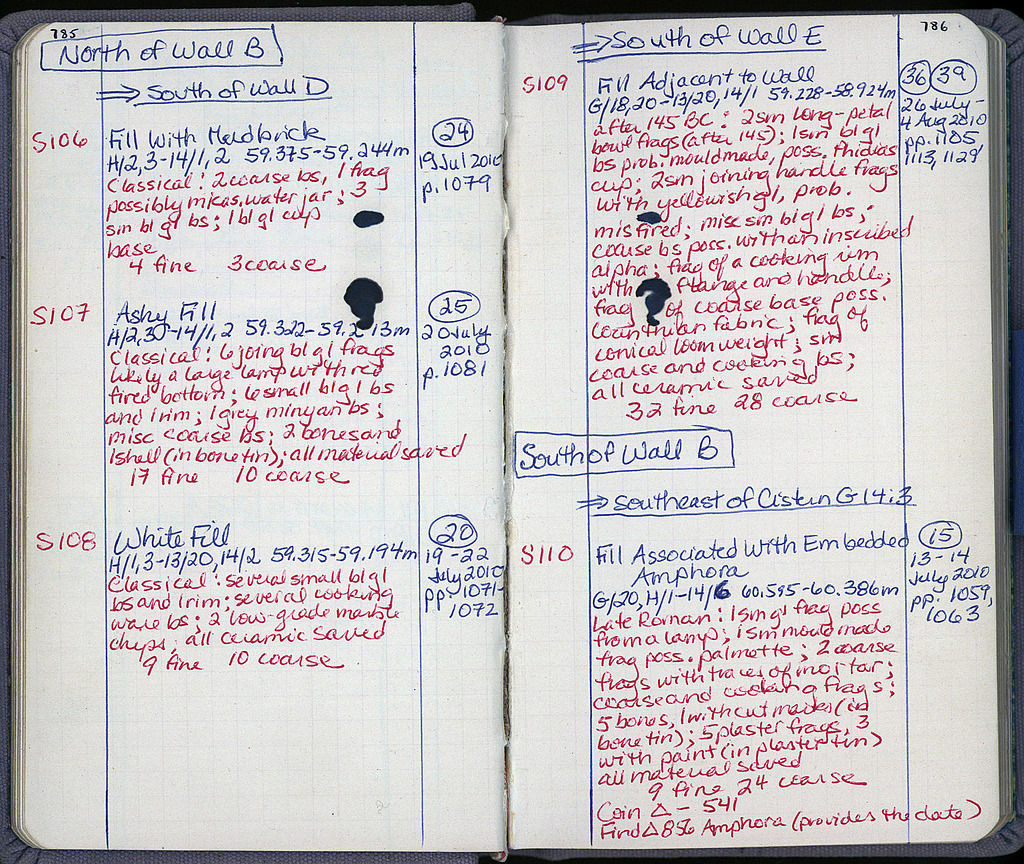 785
North of Wall B
⇒ South of Wall D
S106
Fill With Mudbrick
H/2,3-14/1,2 59.375-59.244m
Classical: 2 coarse bs, 1 frag
possibly micas. water jar; 3
sm bl gl bs; 1 bl gl cup
base
4 fine 3 coarse
24
19 Jul 2010
p. 1079
S107
Ashy Fill
H/2,30-14/1,2 59.322-59.213m
Classical: 6 joing bl gl frags
likely a large lamp with red
fired bottom; 6 small bl gl bs
and 1 rim; 1 grey minyan bs;
misc coarse bs; 2 bones and
1 shell (in bone tin); all material saved
17 fine 10 coarse
25
20 July
2010
p. 1081
S108
White Fill
H/1,3-13/20,14/2 59.315-59.194m
Classical: several small bl gl
bs and 1 rim; several cooking
ware bs; 2 low-grade marble
chips; all ceramic saved
9 fine 10 coarse
20
19-22
July 2010
pp. 1071-
1072
786
⇒ South of Wall E
S109
Fill Adjacent to Wall
G/18,20-13/20,14/1 59.228-58.924m
after 145 BC: 2 sm long-petal
bowl frags (after 145); 1 sm bl gl
bs prob. mouldmade, poss. Phidias
cup; 2 sm joining handle frags
with yellowish gl, prob.
misfired; misc sm bl gl bs;
coarse bs poss. with an inscribed
alpha; frag of a cooking rim
with flange and handle;
frag of coarse base poss.
Corinthian fabric; frag of
conical loomweight; sm
coarse and cooking bs;
all ceramic saved
32 fine 28 coarse
36 39
26 July -
4 Aug 2010
pp. 1105
1113, 1129
South of Wall B
⇒ Southeast of Cistern G 14:3
S110
Fill Associated With Embedded
Amphora
G/20, H/1-14/6 60.595-60.386m
Late Roman: 1 sm gl frag poss
from a lamp; 1 sm mouldmade
frag poss. palmette; 2 coarse
frags with traces of mortar;
coarse and cooking frags;
5 bones, 1 with cut marks (in
bone tin); 5 plaster frags, 3
with paint (in plaster tin)
all material saved
9 fine 24 coarse
Coin Δ - 541
Find Δ 856 Amphora (provides the date)
15
13-14
July 2010
pp. 1059,
1063